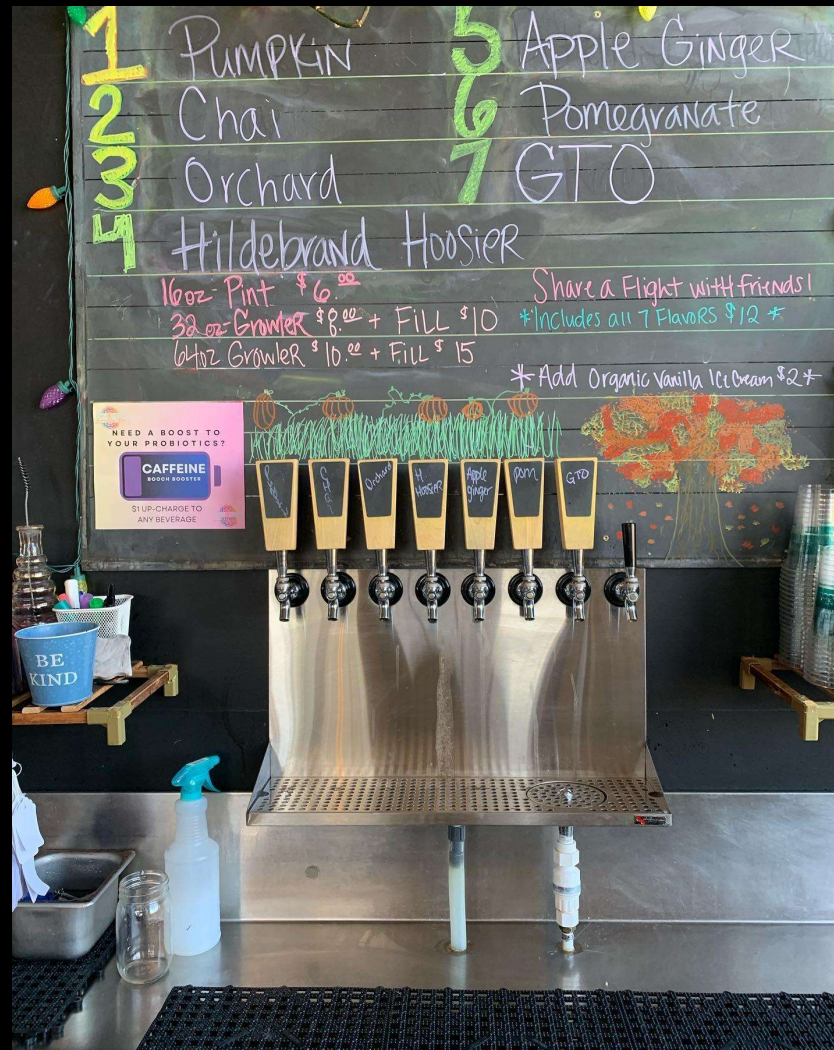 1 Pumpkin
2 Chai
3 Orchard
4 Hildebrand Hoosier
5 Apple Ginger
6 Pomegranate
7 GTO
16oz- Pint $6.00
32 oz- Growler $8.00 + Fill $10
64oz Growler $10.00 + Fill $15
Share a Flight with friends!
*Includes all 7 Flavors $12 *
*Add Organic Vanilla Ice Cream $2*
NEED A BOOST TO
YOUR PROBIOTICS?
CAFFEINE
BOOCH BOOSTER
$1 UP-CHARGE TO
ANY BEVERAGE
Orchard
H.
Hoosier
Apple
ginger
pom
GTO
BE
KIND